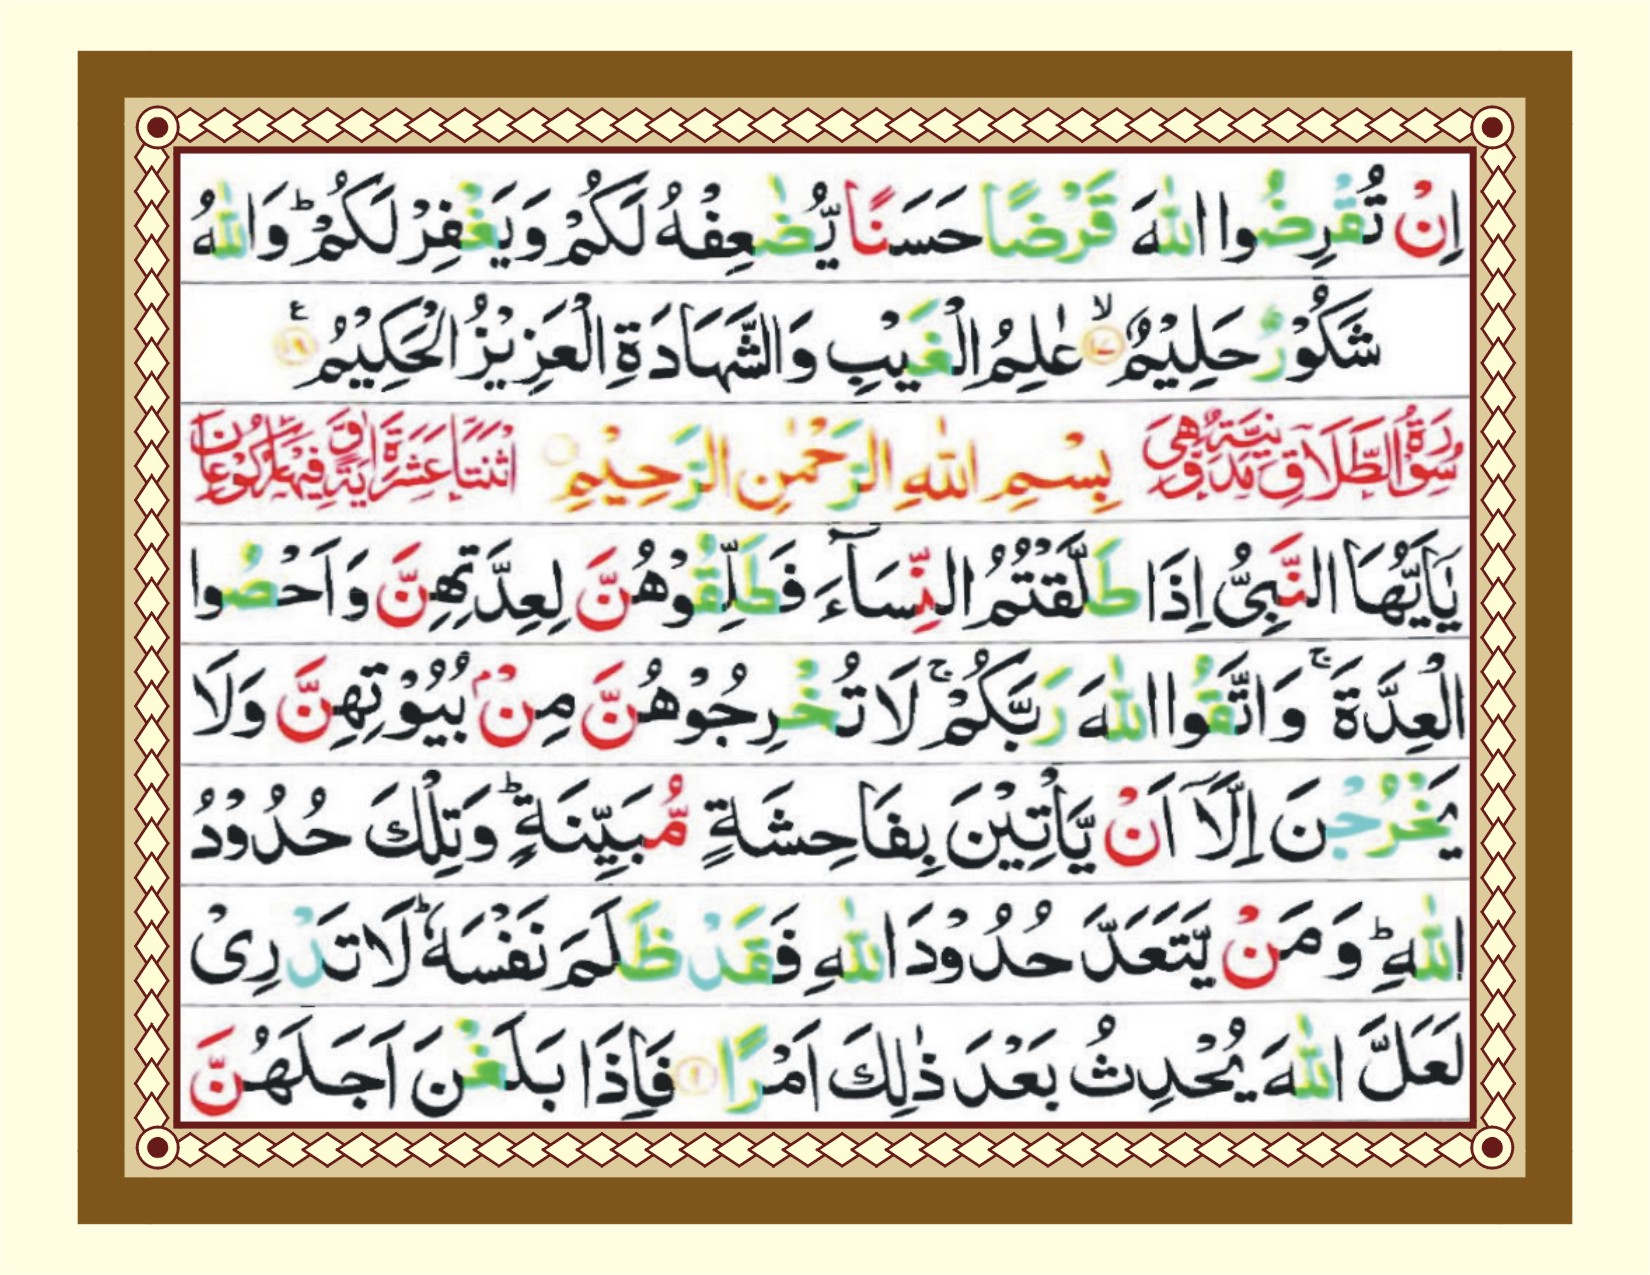 اِنْ تُقْرِضُوا اللّٰهَ قَرْضًا حَسَنًا يُّضٰعِفْهُ لَكُمْ وَيَغْفِرْ لَكُمْ ؕ وَاللّٰهُ
شَكُوْرٌ حَلِيْمٌ ۙ‏﴿۱۷﴾ عٰلِمُ الْغَيْبِ وَالشَّهَادَةِ الْعَزِيْزُ الْحَكِيْمُ ﴿۱۸﴾ ع
سُوْرَةُ الطَّلَاقِ مَدَنِيَّةٌ وَّهِيَ بِسْمِ اللّٰهِ الرَّحْمٰنِ الرَّحِيْمِ اثْنَتَا عَشْرَةَ اٰيَةً وَّفِيْهَا رُكُوْعَانِ
يٰۤاَيُّهَا النَّبِىُّ اِذَا طَلَّقْتُمُ النِّسَآءَ فَطَلِّقُوْهُنَّ لِعِدَّتِهِنَّ وَاَحْصُوا
الْعِدَّةَ ۚ وَاتَّقُوا اللّٰهَ رَبَّكُمْ ۚ لَا تُخْرِجُوْهُنَّ مِنْۢ بُيُوْتِهِنَّ وَلَا
يَخْرُجْنَ اِلَّاۤ اَنْ يَّاْتِيْنَ بِفَاحِشَةٍ مُّبَيِّنَةٍ ؕ وَتِلْكَ حُدُوْدُ
اللّٰهِ ؕ وَمَنْ يَّتَعَدَّ حُدُوْدَ اللّٰهِ فَقَدْ ظَلَمَ نَفْسَهٗ ؕ لَا تَدْرِىْ
لَعَلَّ اللّٰهَ يُحْدِثُ بَعْدَ ذٰلِكَ اَمْرًا ﴿۱﴾ فَاِذَا بَلَغْنَ اَجَلَهُنَّ